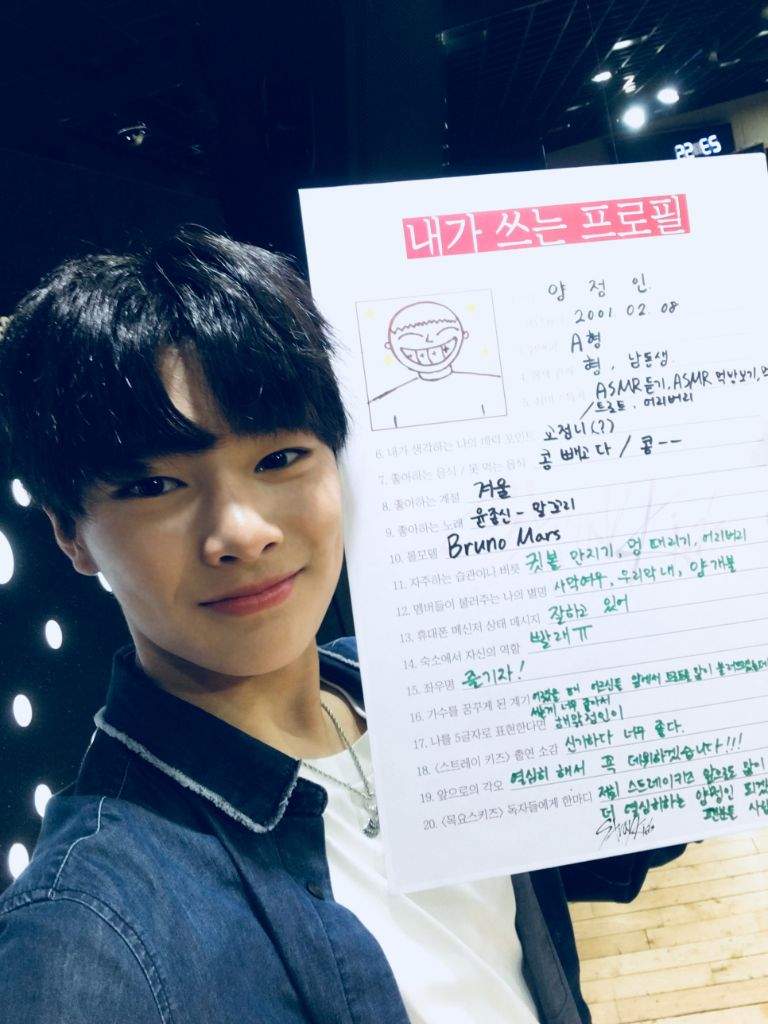 22:53
내가 쓰는 프로필
양 정 인
2001. 02. 08
A형
형, 남동생
ASMR듣기, ASMR 먹방보기,
/트로트. 어리버리
6. 내가 생각하는 나의 매력 포인트 교정니(?)
7. 좋아하는 음식 / 못 먹는 음식 콩 빼고 다 / 콩--
8. 좋아하는 계절 겨울
9. 좋아하는 노래 윤종신 - 말꼬리
10. 롤모델 Bruno Mars
11. 자주하는 습관이나 버릇 귓볼 만지기, 멍 때리기, 어리버리
12. 멤버들이 불러주는 나의 별명 사막여우, 우리막내, 양개불
13. 휴대폰 메신저 상태 메시지 잘하고 있어
14. 숙소에서 자신의 역할 빨래ㅠ
15. 좌우명 즐기자!
16. 가수를 꿈꾸게 된 계기 어렸을 때 어르신들 앞에서 트로트를 많이 불러드렸는데
너무 좋아서
17. 나를 5글자로 표현한다면 해피정인이
18. <스트레이 키즈> 출연 소감 신기하다 너무 좋다.
19. 앞으로의 각오 열심히 해서 꼭 데뷔하겠습니다!!!
20. <목요스키즈> 독자들에게 한마디 저희 스트레이키즈 앞으로도 많이
더 열심히하는 양정인
팬분들